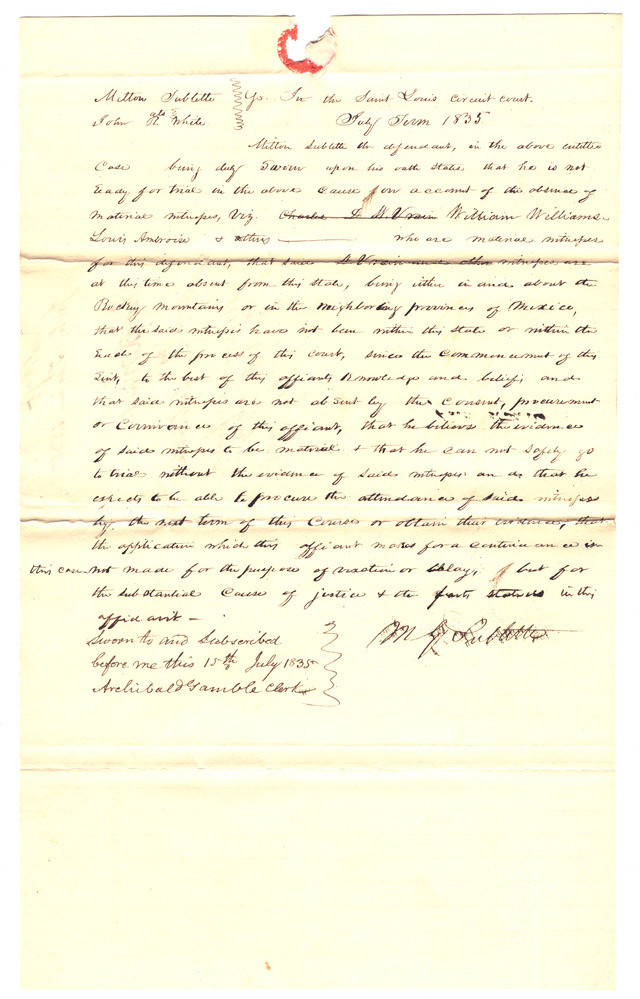 Milton Sublette } In the Saint Louis circuit court.
ats
John R. White } July Term 1835
Milton Sublette the defendant, in the above entitled
Case being duly sworn upon his oath states that he is not
ready for trial in the above Cause for on account of the absence of
material witnesses, viz. Charles D St Vrain William Williams
Louis Ambroise & others who are material witnesses
for this defendant, that said St Vrain and other witnesses are
at this time absent from this state, being either in and about the
Rocky mountains or in the neighboring provinces of Mexico,
that the said witnesses have not been within this state or within the
reach of the process of this court, since the commencement of this
suit, to the best of this affiants knowledge and belief, and
that said witnesses are not absent by the consent, procurement
or connivance of this affiant, that he believes the evidence
of said witnesses to be material & that he can not safely go
to trial without the evidence of said witnesses and that he
expects to be able to procure the attendance of said witnesses
by the next term of this Course or obtain their evidence, that
the application which this affiant makes for a continuance in
this case not made for the purpose of vexation or delay, but for
the substantial cause of justice & the facts stated in this
affidavit —
Sworn to and Subscribed
before me this 15th July 1835
Archibald Gamble clerk
M G Sublette